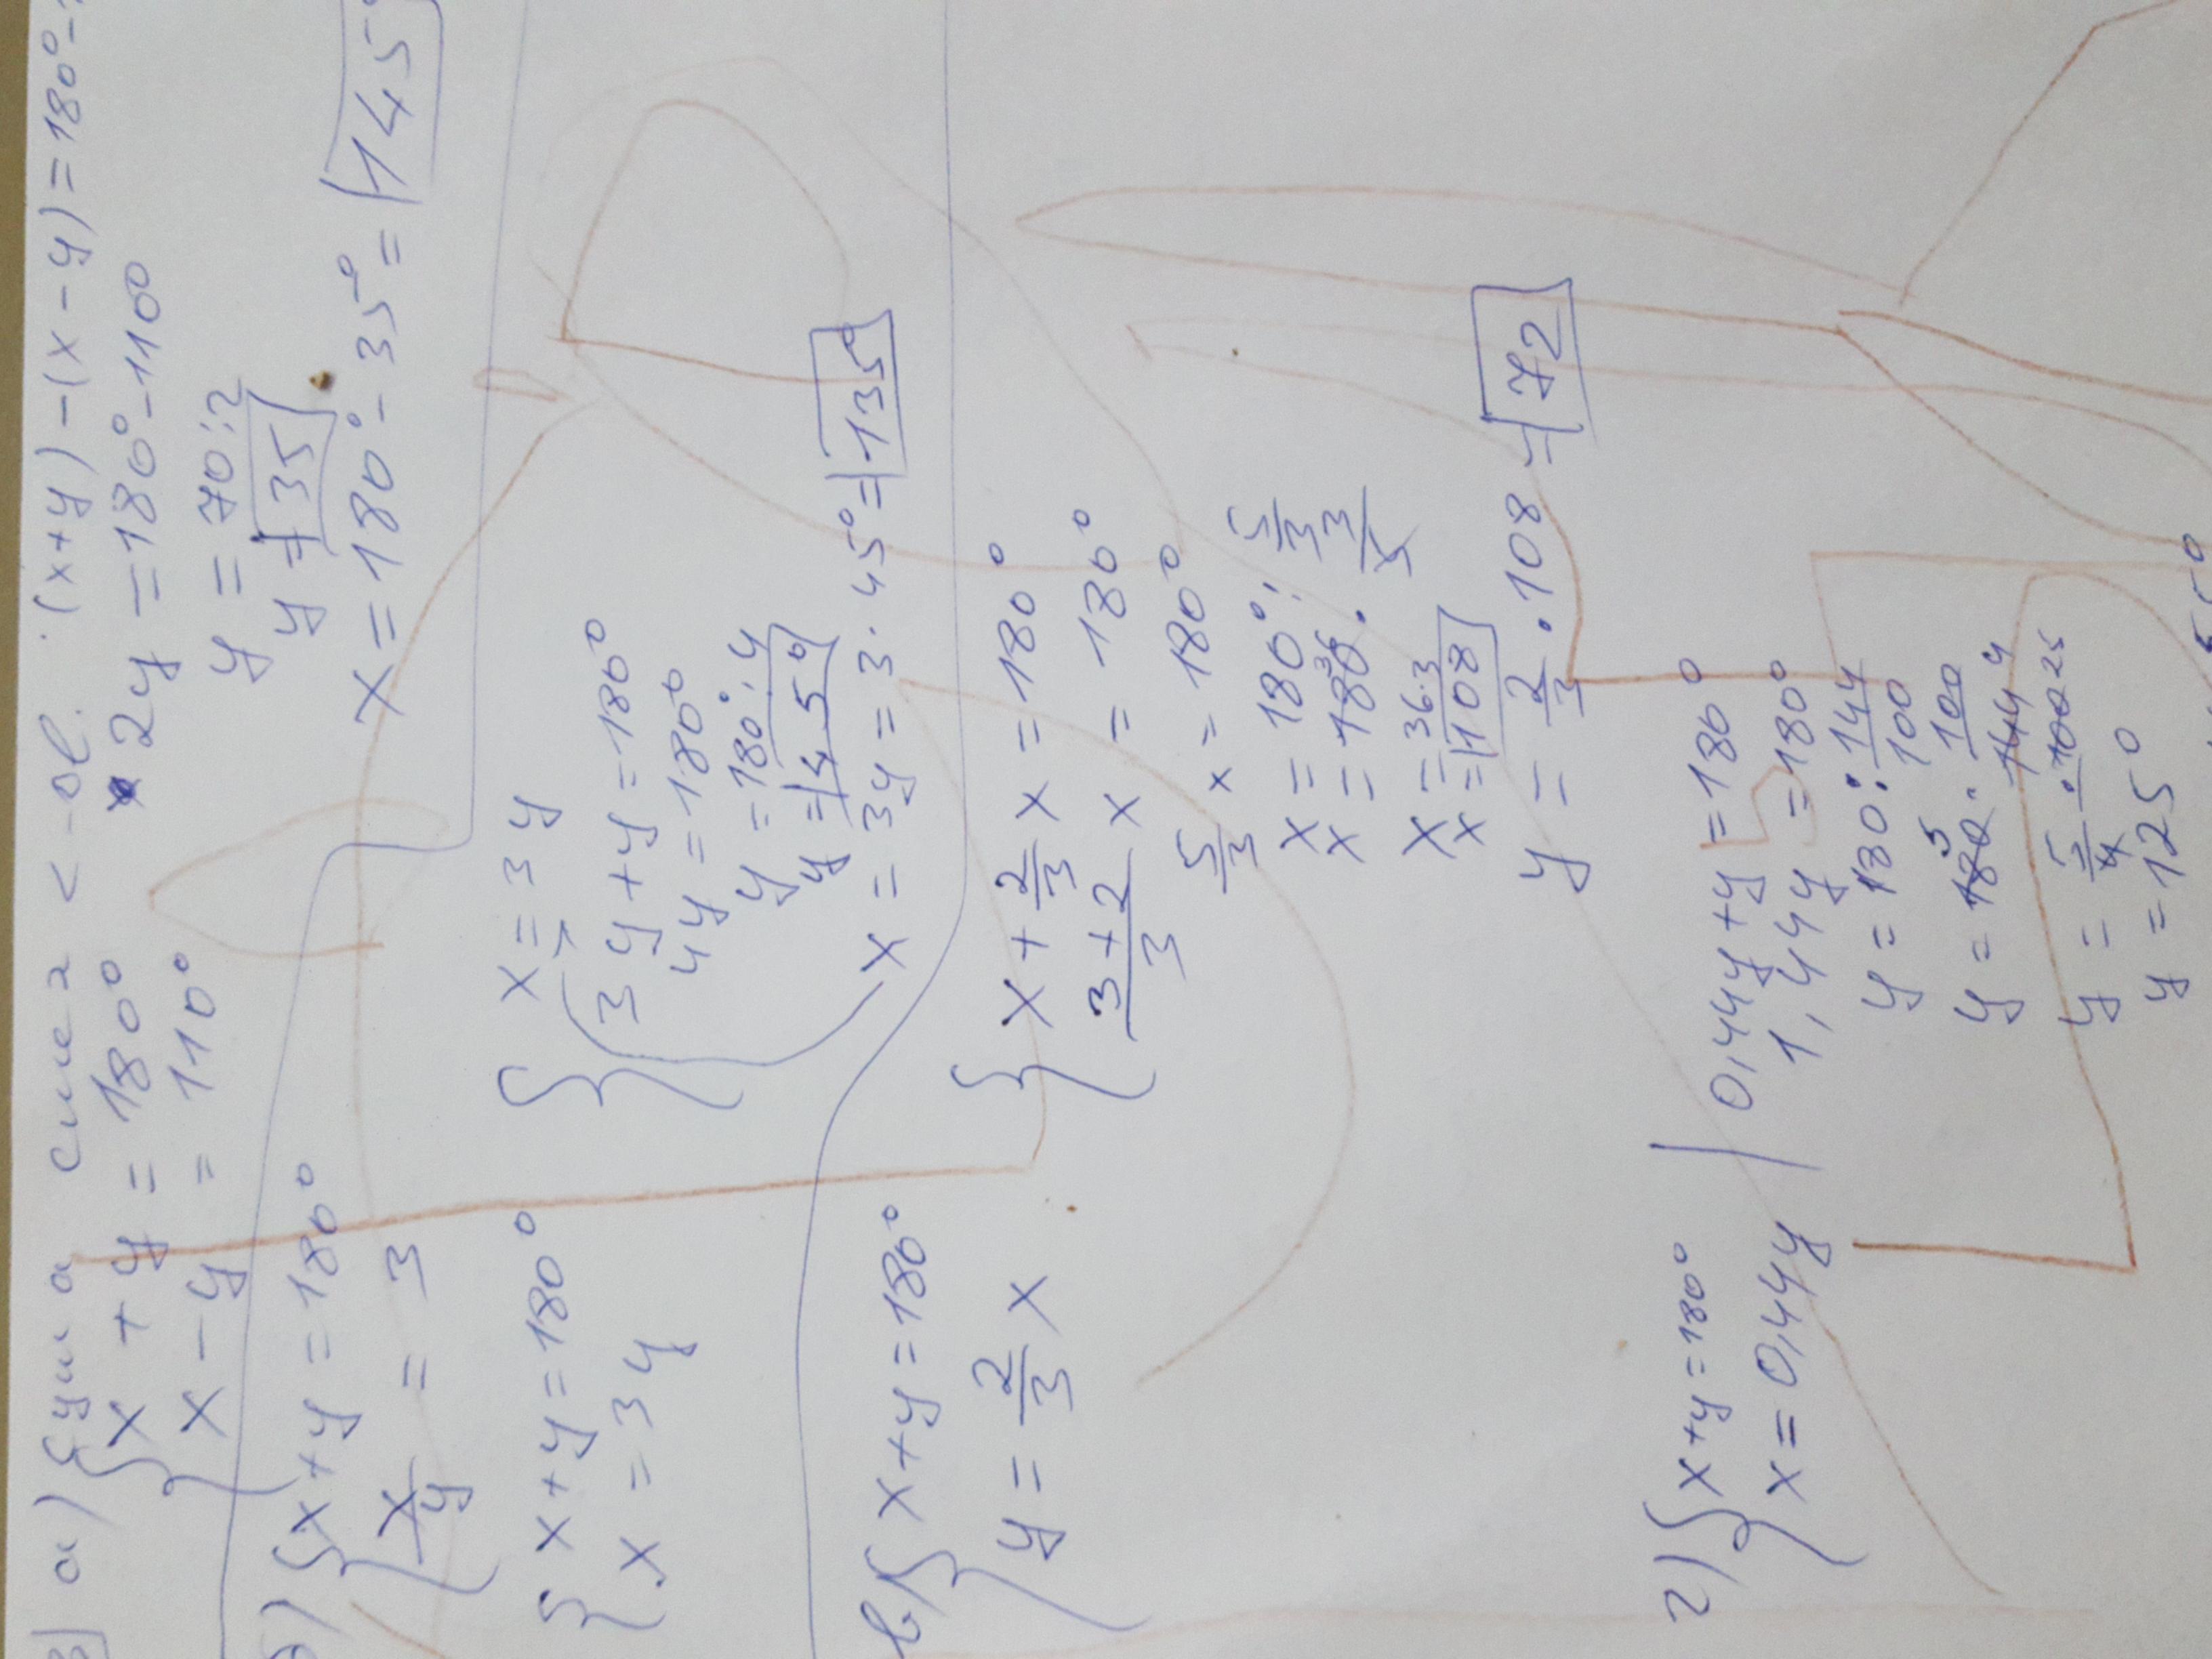 3] а) Сумма смеж < -ов. (x+y)-(x-y)=180°-
{ x + y = 180°
x - y = 110°
2y = 180°-110°
y = 70:2
y = 35
x = 180° - 35° = 145°
б) { x+y = 180°
x/y = 3
{ x+y = 180°
x = 3y
{ x = 3y
3y+y = 180°
4y = 180°
y = 180°:4
y = 45°
x = 3y = 3·45° = 135°
в) { x+y = 180°
y = 2/3 x
{ x + 2/3 x = 180°
3+2/3 x = 180°
5/3 x = 180°
x = 180°: 5/3
x = 180 36 · 3/5
x = 36·3
x = 108
y = 2/3 · 108 = 72
г) { x+y = 180°
x = 0,44y
0,44y+y = 180°
1,44y = 180°
y = 180 : 144/100
y = 180 5 · 100/144 4
y = 5/4 · 100 25
y = 125°